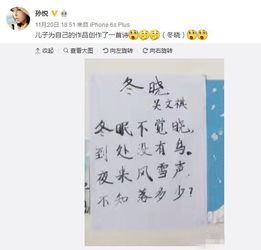 孙悦
11月20日 18:51 来自 iPhone 6s Plus
儿子为自己的作品创作了一首诗（冬晓）
收起 查看大图 向左旋转 向右旋转
冬晓
吴文祺
冬眠不觉晓，
到处没有鸟。
夜来风雪声，
不知落多少？